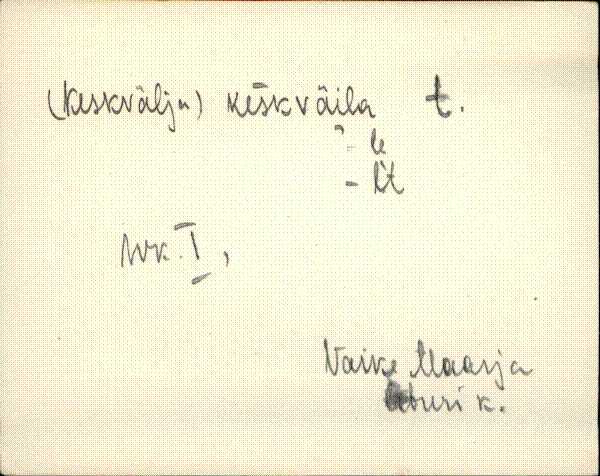 (keskvälja) keskväila t.
- le
- l't
Wk. I,
Vaike Maarja
k.